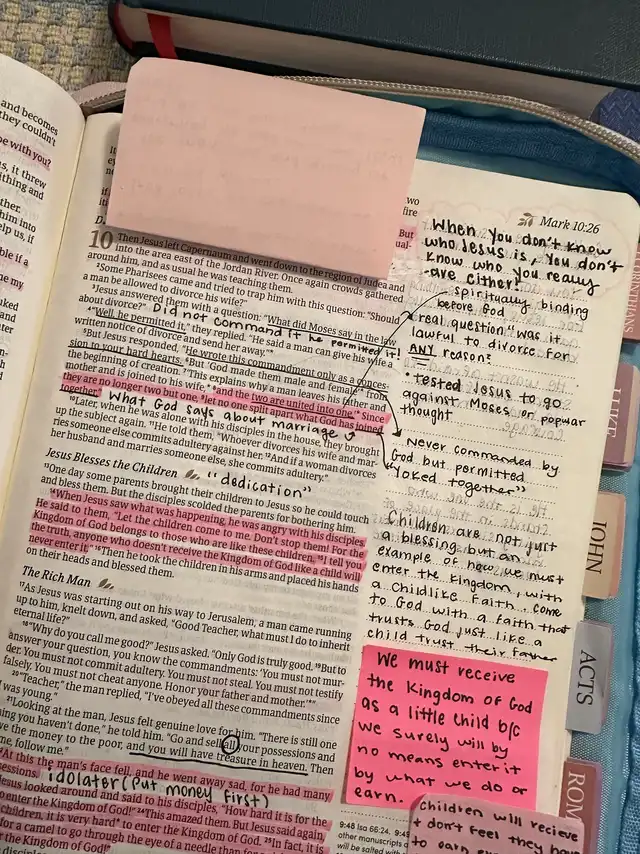 and becomes
they couldn't
be with you?
s, it threw
thing and
ther.
him into
help us, if
ble if a
me my
uked
ter
Mark 10:26
10 Then Jesus left Capernaum and went down to the region of Judea and
into the area east of the Jordan River. Once again crowds gathered
around him, and as usual he was teaching them.
²Some Pharisees came and tried to trap him with this question: "Should
a man be allowed to divorce his wife?"
³Jesus answered them with a question: "What did Moses say in the law
about divorce?" Did not command it he permitted it!
⁴"Well, he permitted it," they replied. "He said a man can give his wife a
written notice of divorce and send her away."
⁵But Jesus responded, "He wrote this commandment only as a conces-
sion to your hard hearts. ⁶But 'God made them male and female' from
the beginning of creation. ⁷'This explains why a man leaves his father and
mother and is joined to his wife, ⁸and the two are united into one.' Since
they are no longer two but one, ⁹let no one split apart what God has joined
together." What God says about marriage
¹⁰Later, when he was alone with his disciples in the house, they brought
up the subject again. ¹¹He told them, "Whoever divorces his wife and mar-
ries someone else commits adultery against her. ¹²And if a woman divorces
her husband and marries someone else, she commits adultery."
Jesus Blesses the Children "dedication"
¹³One day some parents brought their children to Jesus so he could touch
and bless them. But the disciples scolded the parents for bothering him.
¹⁴When Jesus saw what was happening, he was angry with his disciples.
He said to them, "Let the children come to me. Don't stop them! For the
Kingdom of God belongs to those who are like these children. ¹⁵I tell you
the truth, anyone who doesn't receive the Kingdom of God like a child will
never enter it." ¹⁶Then he took the children in his arms and placed his hands
on their heads and blessed them.
The Rich Man
¹⁷As Jesus was starting out on his way to Jerusalem, a man came running
up to him, knelt down, and asked, "Good Teacher, what must I do to inherit
eternal life?"
¹⁸"Why do you call me good?" Jesus asked. "Only God is truly good. ¹⁹But to
answer your question, you know the commandments: 'You must not mur-
der. You must not commit adultery. You must not steal. You must not testify
falsely. You must not cheat anyone. Honor your father and mother.'"
²⁰"Teacher," the man replied, "I've obeyed all these commandments since
I was young."
²¹Looking at the man, Jesus felt genuine love for him. "There is still one
thing you haven't done," he told him. "Go and sell all your possessions and
give the money to the poor, and you will have treasure in heaven. Then
come, follow me."
²²At this the man's face fell, and he went away sad, for he had many
possessions. idolater (put money first)
Jesus looked around and said to his disciples, "How hard it is for the
to enter the Kingdom of God!" ²⁴This amazed them. But Jesus said again,
children, it is very hard to enter the Kingdom of God. ²⁵In fact, it is
for a camel to go through the eye of a needle than for a
Kingdom of God!"
When you don't know
who Jesus is, you don't
know who you really
are either!
spiritually binding
before God
real question "was it
lawful to divorce for
ANY reason?
tested Jesus to go
against Moses or popular
thought
Never commanded by
God but permitted
"Yoked together"
Children are not just
a blessing but an
example of how we must
enter the Kingdom, with
a childlike faith. come
to God with a faith that
trusts God just like a
child trust their father
We must receive
the Kingdom of God
as a little child b/c
we surely will by
no means enter it
by what we do or
earn.
9:48 Isa 66:24. 9:49
other manuscripts a
will be salted with
children will recieve
+ don't feel they ha
to earn
CORINTHIANS
LUKE
JOHN
ACTS
ROM